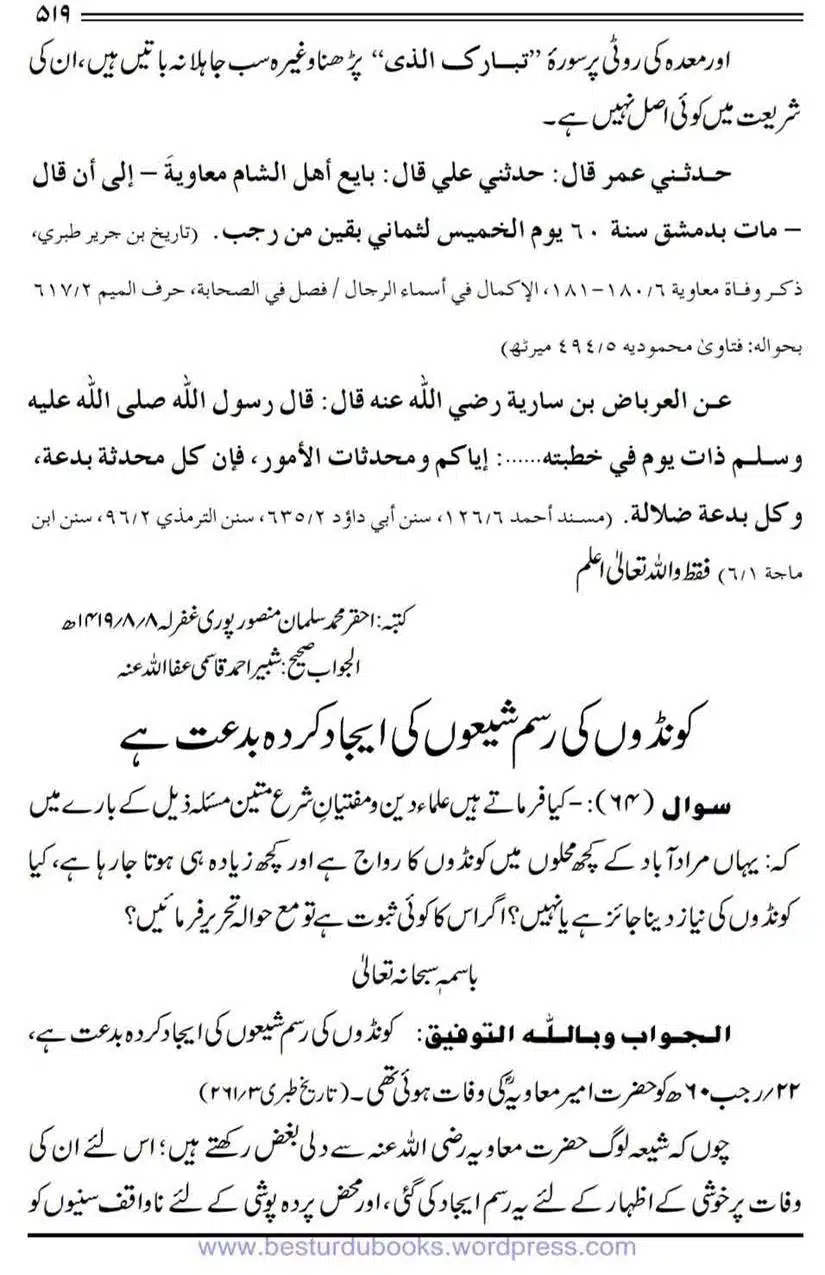 ۵۱۹
اور معدہ کی روٹی پر سورۂ ”تبارک الذی“ پڑھنا وغیرہ سب جاہلانہ باتیں ہیں، ان کی
شریعت میں کوئی اصل نہیں ہے۔
حدثني عمر قال: حدثني علي قال: بايع أهل الشام معاوية – إلى أن قال
– مات بدمشق سنة ٦٠ يوم الخميس لثماني بقين من رجب. (تاريخ بن جرير طبري،
ذكر وفاة معاوية ١٨٠/٦-١٨١، الإكمال في أسماء الرجال / فصل في الصحابة، حرف الميم ٦١٧/٢
بحواله: فتاویٰ محمودیه ٤٩٤/٥ میرٹھ)
عن العرباض بن سارية رضي الله عنه قال: قال رسول الله صلى الله عليه
وسلم ذات يوم في خطبته......: إياكم ومحدثات الأمور، فإن كل محدثة بدعة،
وكل بدعة ضلالة. (مسند أحمد ١٢٦/٦، سنن أبي داؤد ٦٣٥/٢، سنن الترمذي ٩٦/٢، سنن ابن
ماجة ٦/١) فقط واللہ تعالیٰ اعلم
کتبہ: احقر محمد سلمان منصور پوری غفرلہ ۱۴۱۹/۸/۸ھ
الجواب صحیح: شبیر احمد قاسمی عفا اللہ عنہ
کونڈوں کی رسم شیعوں کی ایجاد کردہ بدعت ہے
سوال (۶۴):- کیا فرماتے ہیں علماء دین و مفتیانِ شرع متین مسئلہ ذیل کے بارے میں
کہ: یہاں مرادآباد کے کچھ محلوں میں کونڈوں کا رواج ہے اور کچھ زیادہ ہی ہوتا جارہا ہے، کیا
کونڈوں کی نیاز دینا جائز ہے یا نہیں؟ اگر اس کا کوئی ثبوت ہے تو مع حوالہ تحریر فرمائیں؟
باسمہٖ سبحانہ تعالیٰ
الجواب وباللہ التوفیق: کونڈوں کی رسم شیعوں کی ایجاد کردہ بدعت ہے،
۲۲؍رجب ۶۰ھ کو حضرت امیر معاویہؓ کی وفات ہوئی تھی۔ (تاریخ طبری ۲۶۱/۳)
چوں کہ شیعہ لوگ حضرت معاویہ رضی اللہ عنہ سے دلی بغض رکھتے ہیں؛ اس لئے ان کی
وفات پر خوشی کے اظہار کے لئے یہ رسم ایجاد کی گئی، اور محض پردہ پوشی کے لئے ناواقف سنیوں کو
www.besturdubooks.wordpress.com